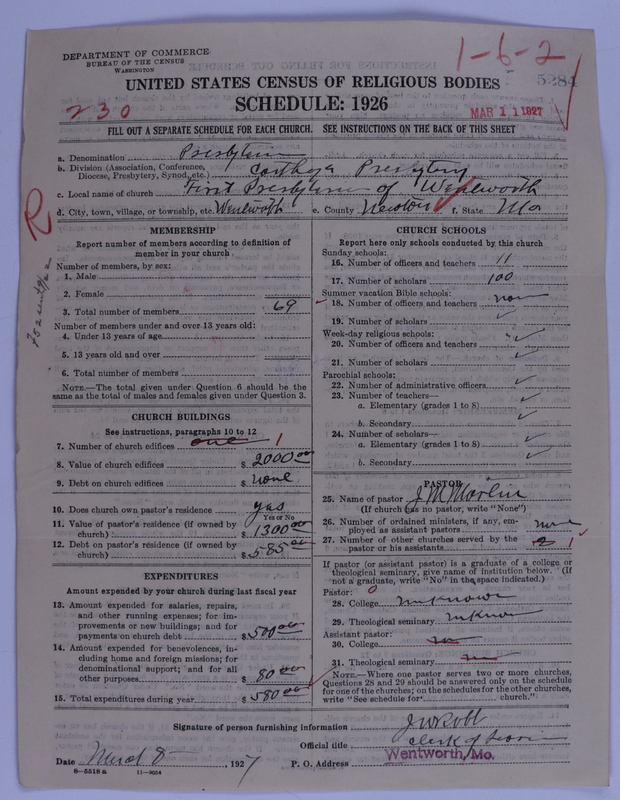 DEPARTMENT OF COMMERCE
BUREAU OF THE CENSUS
WASHINGTON
1-6-2
5284
UNITED STATES CENSUS OF RELIGIOUS BODIES
SCHEDULE: 1926
230
MAR 11 1927
FILL OUT A SEPARATE SCHEDULE FOR EACH CHURCH. SEE INSTRUCTIONS ON THE BACK OF THIS SHEET
a. Denomination Presbyterian
b. Division (Association, Conference, Diocese, Presbytery, Synod, etc.) Carthage Presbytery
c. Local name of church First Presbyterian of Wentworth
d. City, town, village, or township, etc. Wentworth e. County Newton f. State Mo
R
MEMBERSHIP
Report number of members according to definition of
member in your church
Number of members, by sex:
1. Male
2. Female
3. Total number of members 69
Number of members under and over 13 years old:
4. Under 13 years of age
5. 13 years old and over
6. Total number of members
NOTE.—The total given under Question 6 should be
same as the total of males and females given under Question 3.
CHURCH BUILDINGS
See instructions, paragraphs 10 to 12
7. Number of church edifices one 1
8. Value of church edifices $ 2000 00
9. Debt on church edifices $ none
10. Does church own pastor's residence yes
Yes or No
11. Value of pastor's residence (if owned by
church) $ 1300 00
12. Debt on pastor's residence (if owned by
church) $ 585 00
EXPENDITURES
Amount expended by your church during last fiscal year
13. Amount expended for salaries, repairs,
and other running expenses; for im-
provements or new buildings; and for
payments on church debt $ 500 00
14. Amount expended for benevolences, in-
cluding home and foreign missions; for
denominational support; and for all
other purposes $ 80 00
15. Total expenditures during year $ 580 00
CHURCH SCHOOLS
Report here only schools conducted by this church
Sunday schools:
16. Number of officers and teachers 11
17. Number of scholars 100
Summer vacation Bible schools:
18. Number of officers and teachers none
19. Number of scholars
Week-day religious schools:
20. Number of officers and teachers
21. Number of scholars
Parochial schools:
22. Number of administrative officers
23. Number of teachers—
a. Elementary (grades 1 to 8)
b. Secondary
24. Number of scholars—
a. Elementary (grades 1 to 8)
b. Secondary
PASTOR
25. Name of pastor J M Marlin
(If church has no pastor, write "None")
26. Number of ordained ministers, if any, em-
ployed as assistant pastors none
27. Number of other churches served by the
pastor or his assistants 2 1
If pastor (or assistant pastor) is a graduate of a college or
theological seminary, give name of institution below. (If
not a graduate, write "No" in the space indicated.)
Pastor:
28. College unknown
29. Theological seminary unknown
Assistant pastor:
30. College no
31. Theological seminary no
NOTE.—Where one pastor serves two or more churches,
Questions 28 and 29 should be answered only on the schedule
for one of the churches; on the schedules for the other churches,
write "See schedule for church."
Signature of person furnishing information J W Robb
Official title Clerk of Session
Date March 8, 1927 P. O. Address Wentworth, Mo.
8-5518a 11-9054